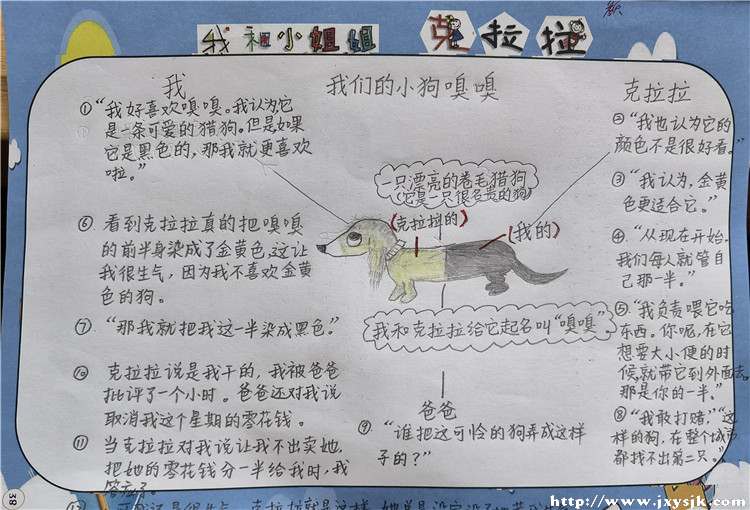 我和小姐姐 克拉拉
我
我们的小狗嗅嗅
克拉拉
① “我好喜欢嗅嗅。我认为它
是一条可爱的猎狗。但是如果
它是黑色的,那我就更喜欢
啦。”
② “我也认为它的
颜色不是很好看。”
③ “我认为,金黄
色更适合它。”
④ “从现在开始,
我们每人就管自
己那一半。”
⑤ “我负责喂它吃
东西。你呢,在它
想要大小便的时
候,就带它到外面去。
那是你的一半。”
一只漂亮的卷毛猎狗
(它是一只很名贵的狗)
(克拉拉的)
(我的)
我和克拉拉给它起名叫“嗅嗅”
⑥ 看到克拉拉真的把嗅嗅
的前半身染成了金黄色,这让
我很生气,因为我不喜欢金黄
色的狗。
⑦ “那我就把我这一半染成黑色。”
⑧ “我敢打赌,”“这
样的狗,在整个城市
都找不出第二只。”
爸爸
⑨ “谁把这可怜的狗弄成这样
子的?”
⑩ 克拉拉说是我干的,我被爸爸
批评了一个小时。爸爸还对我说
取消我这个星期的零花钱。
⑪ 当克拉拉对我说让我不出卖她,
把她的零花钱分一半给我时,我
答应了。
38
http://www.jxysjk.com